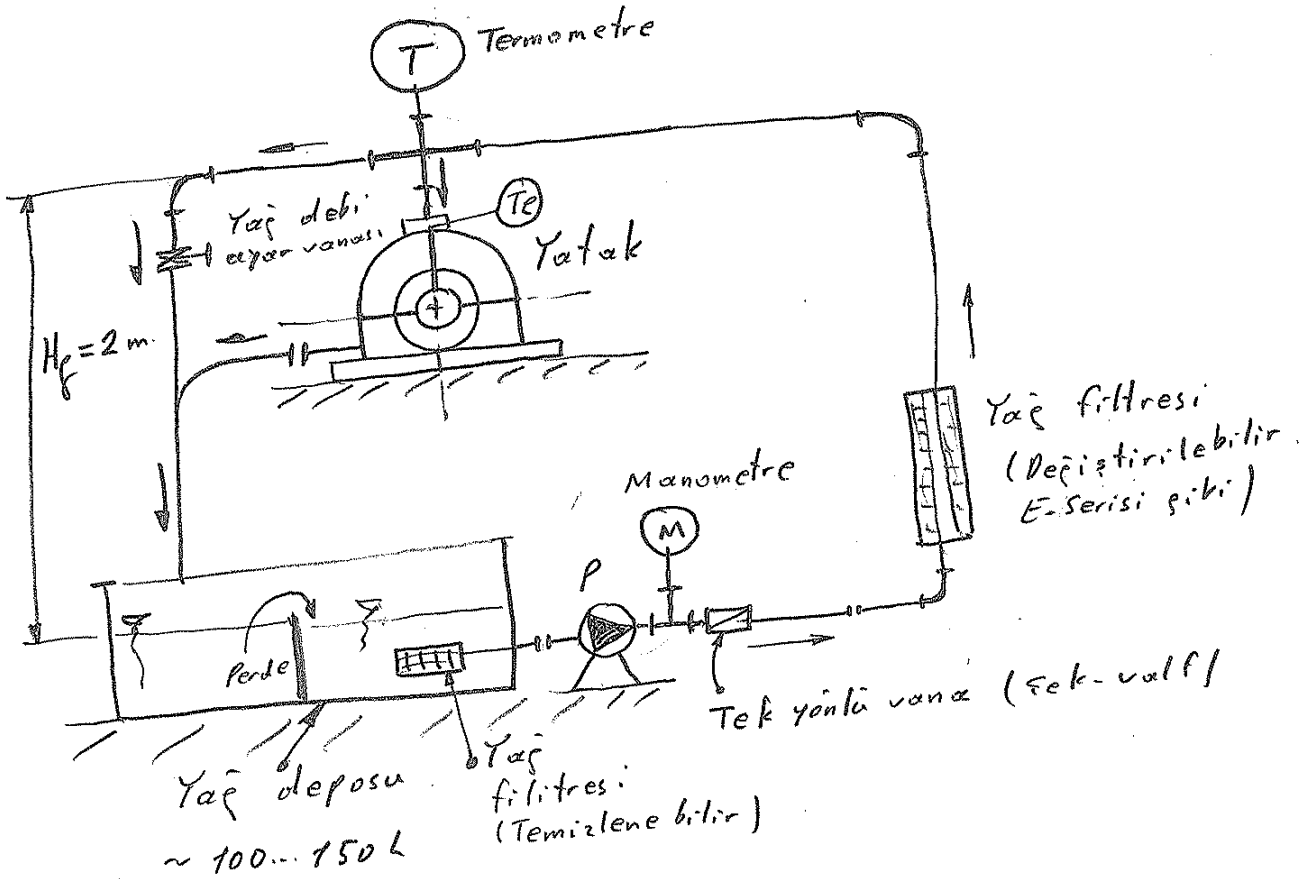 T
Termometre
Te
Yağ debi
ayar vanası
Yatak
Hg = 2 m.
Yağ filtresi
(Değiştirilebilir
E-Serisi gibi)
Manometre
M
P
Perde
Tek yönlü vana (çek-valf)
Yağ deposu
~ 100... 150 L
Yağ
filitresi
(Temizlene bilir)